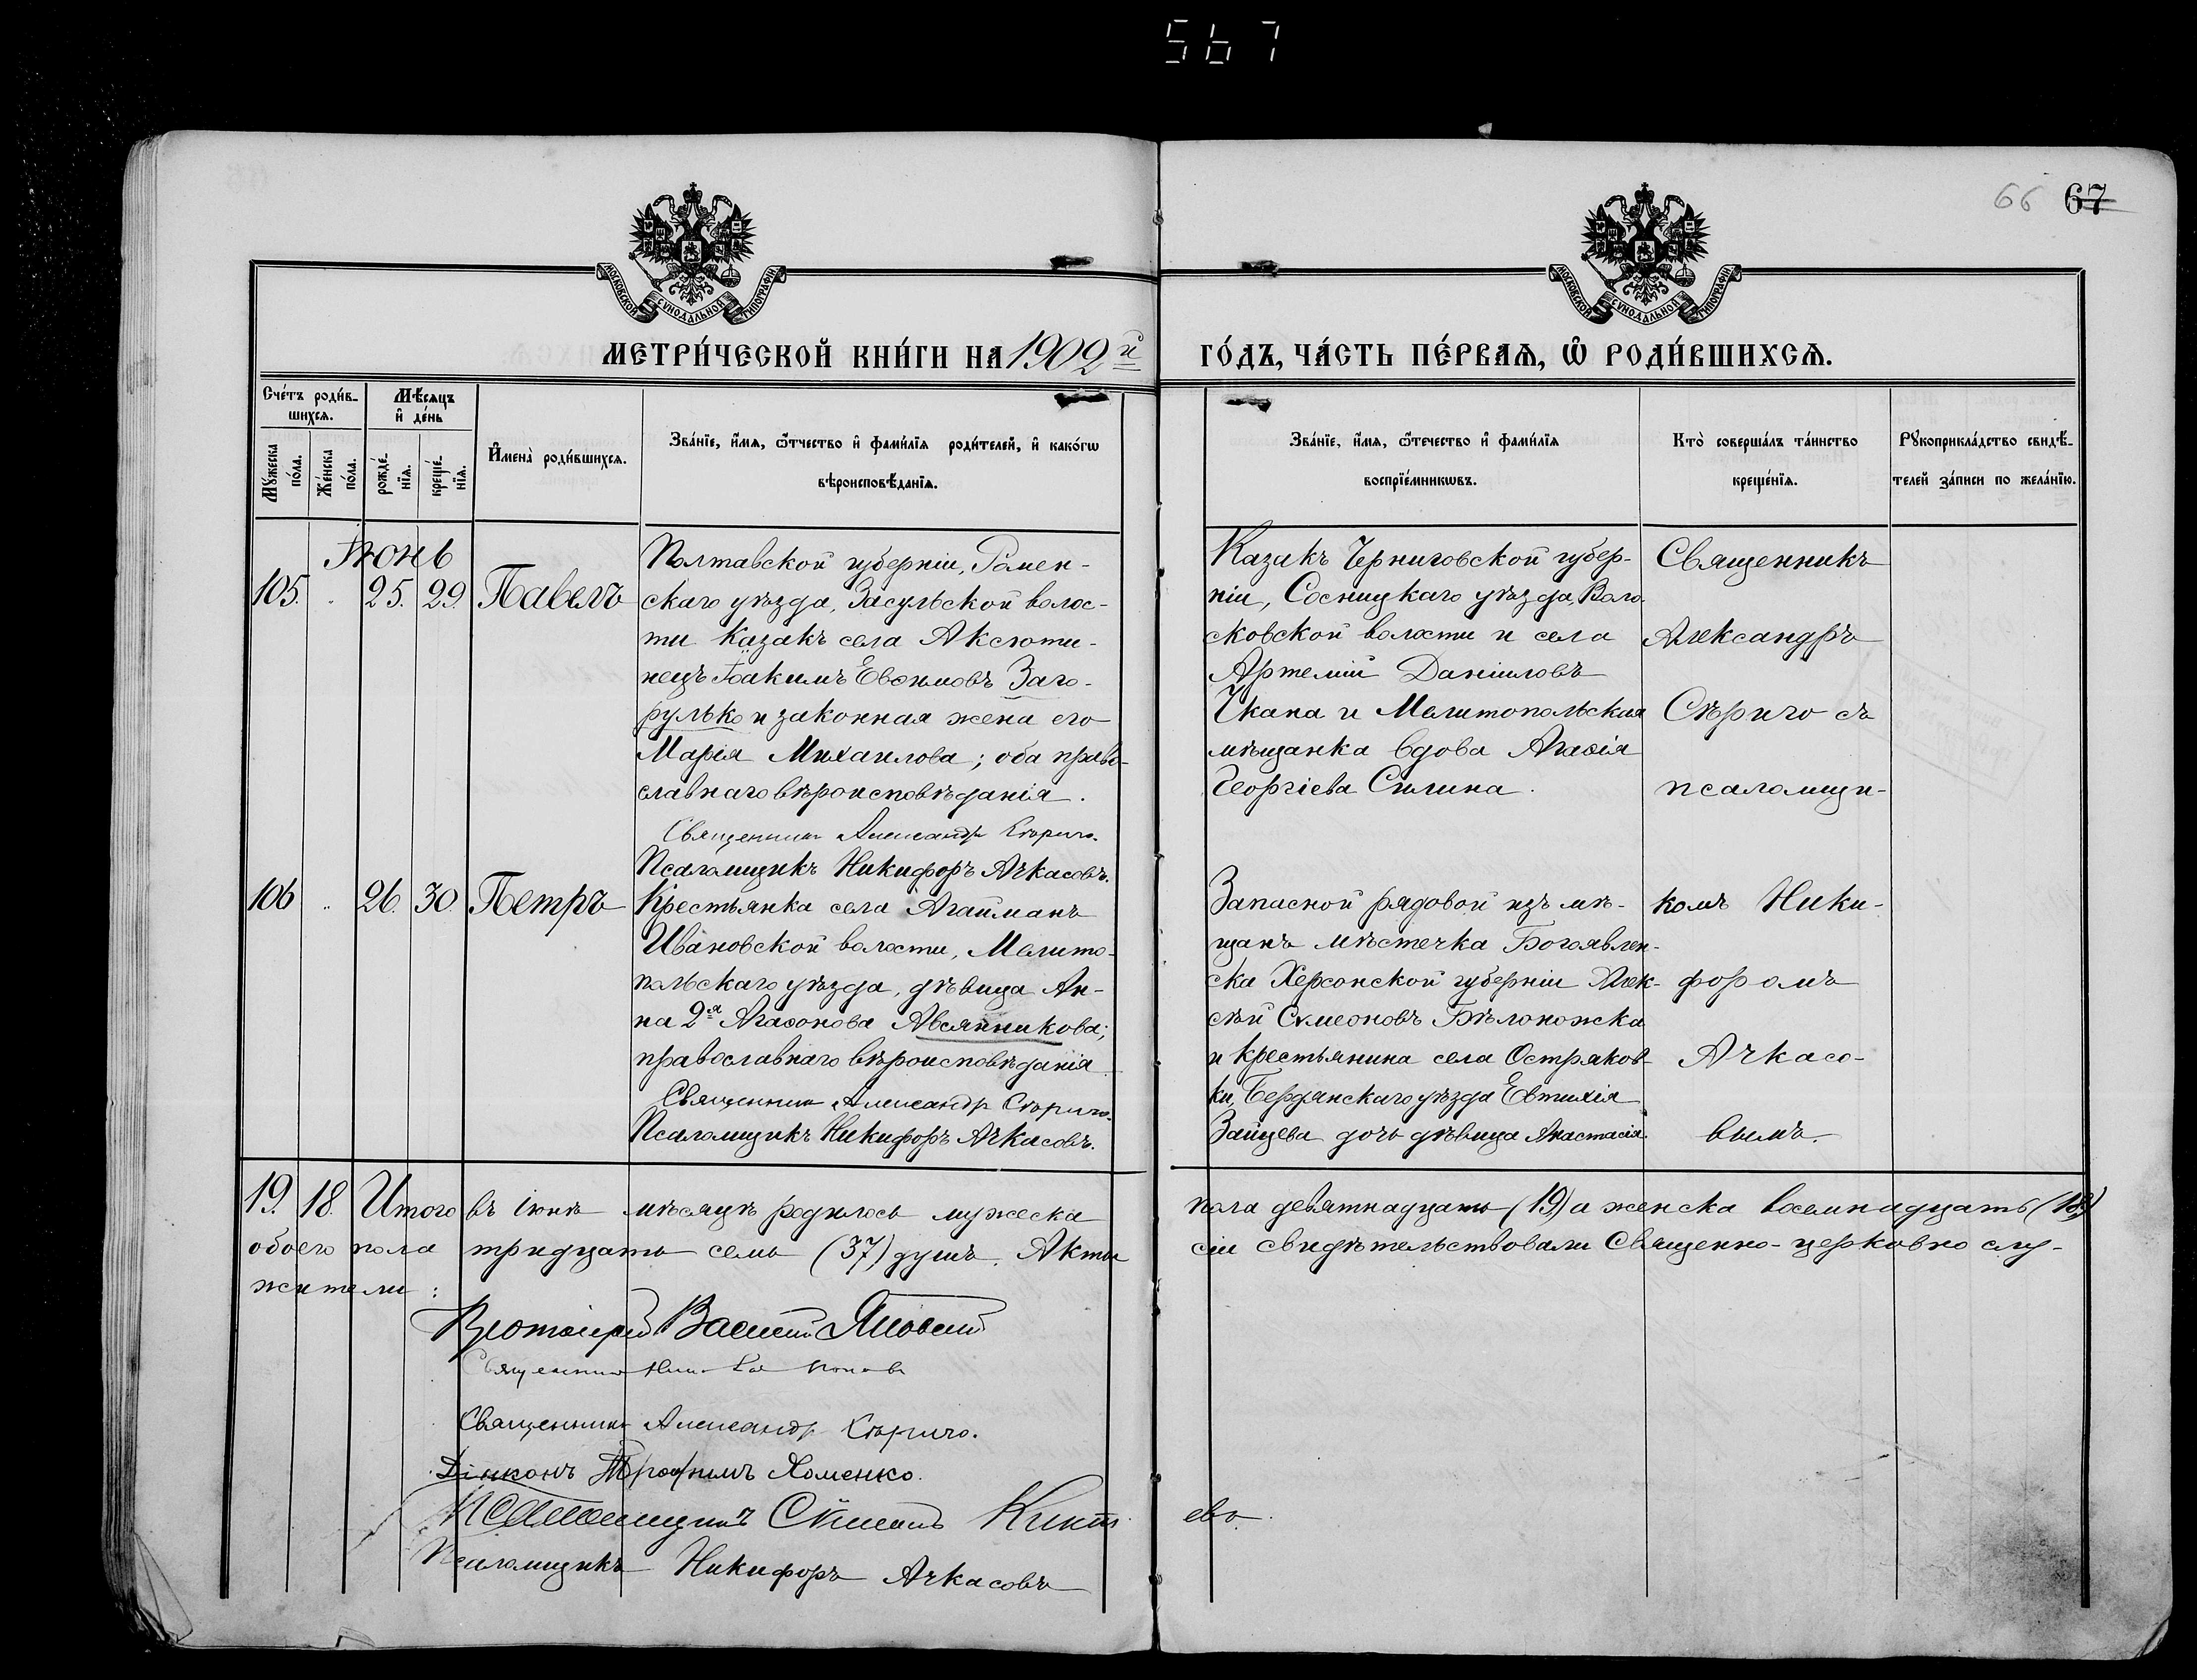 567
66 67
МОСКОВСКОЙ СУНОДАЛЬНОЙ ТИПОГРАФІИ
МОСКОВСКОЙ СУНОДАЛЬНОЙ ТИПОГРАФІИ
МЕТРИ́ЧЕСКОЙ КНИ́ГИ НА 1902й
ГО́ДЪ, ЧА́СТЬ ПЕ́РВАѦ, Ѡ҆ РОДИ́ВШИХСѦ.
Сче́тъ роди́в-
шихсѧ.
Мꙋ́жеска по́ла.
Же́нска по́ла.
Мѣ́сѧцъ
и҆ де́нь
рожде́-
нїѧ.
креще́-
нїѧ.
И҆мена̀ роди́вшихсѧ.
Зва́нїе, и҆́мѧ, ѻ҆́тчество и҆ фами́лїѧ роди́телей, и҆ како́гѡ
вѣроисповѣ́данїѧ.
Зва́нїе, и҆́мѧ, ѻ҆́течество и҆ фами́лїѧ
воспрїе́мникѡвъ.
Кто̀ соверша́лъ та́инство
креще́нїѧ.
Рꙋкоприкла́дство свидѣ́-
телей за́писи по жела́нїю.
Іюнь
105. " 25. 29. Павелъ
Полтавской губерніи, Ромен-
скаго уѣзда, Засульской волос-
ти казакъ села Аксюти-
нецъ Іоакимъ Евѳимовъ Заго-
рулько и законная жена его
Марія Михаилова; оба право-
славнаго вѣроисповѣданія.
Священникъ Александръ Сѣриго.
Псаломщикъ Никифоръ Ачкасовъ.
Казакъ Черниговской губер-
ніи, Сосницкаго уѣзда, Воло-
сковской волости и села
Артемій Даніиловъ
Чкана и Мелитопольская
мѣщанка вдова Агаѳія
Георгіева Силина.
Священникъ
Александръ
Сѣриго съ
псаломщи-
106 " 26. 30. Петръ
Крестьянка села Агайманъ
Ивановской волости, Мелито-
польскаго уѣзда, дѣвица Ан-
на 2я Агаѳонова Авсянникова;
православнаго вѣроисповѣданія
Священникъ Александръ Сѣриго.
Псаломщикъ Никифоръ Ачкасовъ.
Запасной рядовой изъ мѣ-
щанъ мѣстечка Богоявлен-
ска Херсонской губерніи Алек-
сѣй Сѵмеоновъ Бѣлоножка
и крестьянина села Остряков-
ки, Бердянскаго уѣзда Евтихія
Зайцева дочь дѣвица Анастасія.
комъ Ники-
форомъ
Ачкасо-
вымъ.
19. 18. Итого въ іюнѣ мѣсяцѣ родилось мужеска
пола девятнадцать (19) а женска восемнадцать (18)
обоего пола тридцать семь (37) душъ. Акты
сіи свидѣтельствовали Священно-церковно слу-
жители:
Протоіерей Василій
Священникъ
Священникъ Александръ Сѣриго.
Діаконъ Трофимъ Хоменко.
Псаломщикъ Кикт
ево.
Псаломщикъ Никифоръ Ачкасовъ